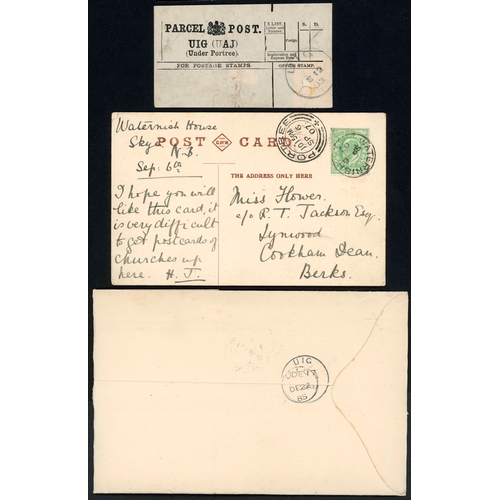 PARCEL POST.
UIG (UAJ)
(Under Portree).
FOR POSTAGE STAMPS.
OFFICE STAMP.
S. D.
Waternish House
Skye
N.B.
Sep: 6th
POST CARD
PORTREE
WATERNISH
THE ADDRESS ONLY HERE
I hope you will
like this card, it
is very difficult
to get postcards of
churches up
here. H. J.
Miss Flower.
c/o P. T. Jackson Esq.
Lynwood
Cookham Dean.
Berks.
UIG
DE 22
85